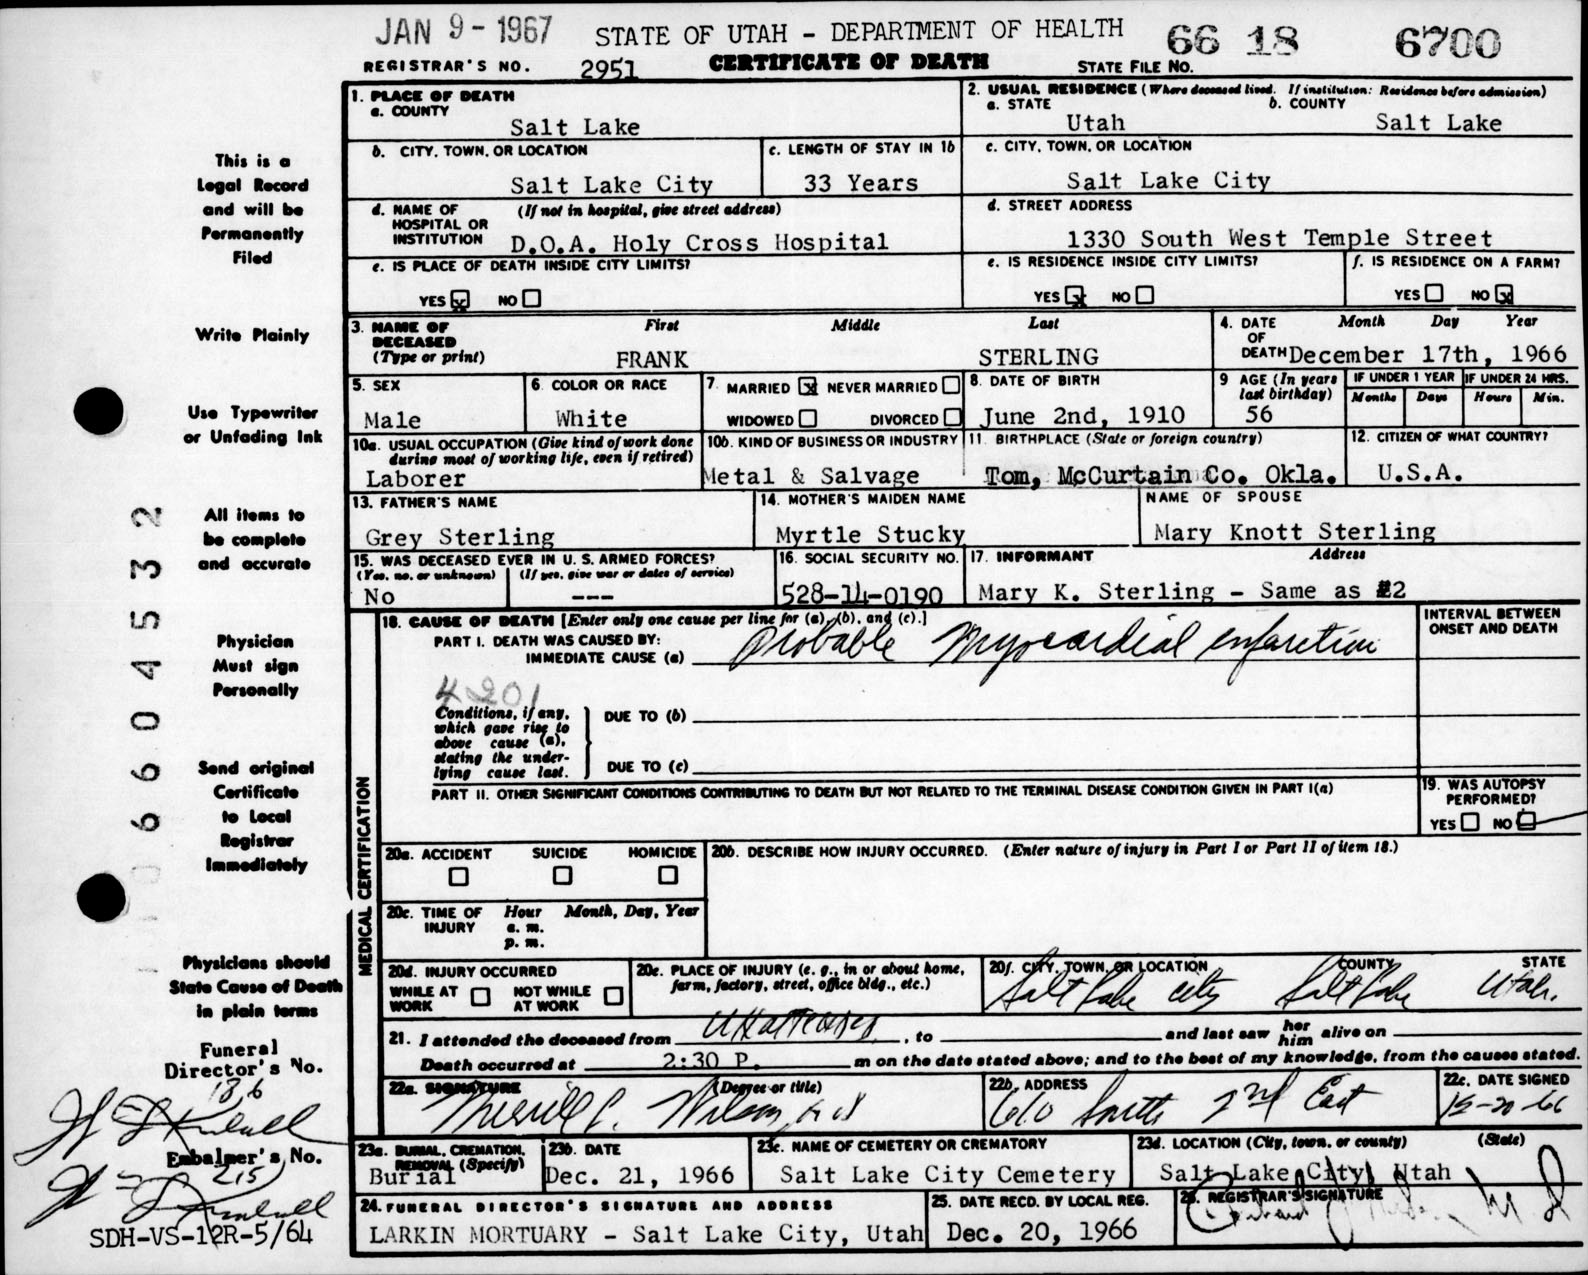 JAN 9 - 1967 STATE OF UTAH - DEPARTMENT OF HEALTH 66 18 6700
REGISTRAR'S NO. 2951 CERTIFICATE OF DEATH STATE FILE NO.
1. PLACE OF DEATH
a. COUNTY
Salt Lake
2. USUAL RESIDENCE (Where deceased lived. If institution: Residence before admission)
a. STATE b. COUNTY
Utah Salt Lake
b. CITY, TOWN, OR LOCATION
Salt Lake City
c. LENGTH OF STAY IN 1b
33 Years
c. CITY, TOWN, OR LOCATION
Salt Lake City
d. NAME OF HOSPITAL OR INSTITUTION (If not in hospital, give street address)
D.O.A. Holy Cross Hospital
d. STREET ADDRESS
1330 South West Temple Street
e. IS PLACE OF DEATH INSIDE CITY LIMITS?
YES x NO
e. IS RESIDENCE INSIDE CITY LIMITS?
YES x NO
f. IS RESIDENCE ON A FARM?
YES NO x
3. NAME OF DECEASED (Type or print) First Middle Last
FRANK STERLING
4. DATE OF DEATH Month Day Year
December 17th, 1966
5. SEX
Male
6. COLOR OR RACE
White
7. MARRIED x NEVER MARRIED
WIDOWED DIVORCED
8. DATE OF BIRTH
June 2nd, 1910
9 AGE (In years last birthday)
56
IF UNDER 1 YEAR IF UNDER 24 HRS.
Months Days Hours Min.
10a. USUAL OCCUPATION (Give kind of work done during most of working life, even if retired)
Laborer
10b. KIND OF BUSINESS OR INDUSTRY
Metal & Salvage
11. BIRTHPLACE (State or foreign country)
Tom, McCurtain Co. Okla.
12. CITIZEN OF WHAT COUNTRY?
U.S.A.
13. FATHER'S NAME
Grey Sterling
14. MOTHER'S MAIDEN NAME
Myrtle Stucky
NAME OF SPOUSE
Mary Knott Sterling
15. WAS DECEASED EVER IN U. S. ARMED FORCES?
(Yes, no, or unknown) (If yes, give war or dates of service)
No ---
16. SOCIAL SECURITY NO.
528-14-0190
17. INFORMANT Address
Mary K. Sterling - Same as #2
18. CAUSE OF DEATH [Enter only one cause per line for (a), (b), and (c).]
PART I. DEATH WAS CAUSED BY:
IMMEDIATE CAUSE (a) Probable Myocardial infarction
INTERVAL BETWEEN ONSET AND DEATH
4201
Conditions, if any, which gave rise to above cause (a), stating the underlying cause last.
DUE TO (b)
DUE TO (c)
PART II. OTHER SIGNIFICANT CONDITIONS CONTRIBUTING TO DEATH BUT NOT RELATED TO THE TERMINAL DISEASE CONDITION GIVEN IN PART I(a)
19. WAS AUTOPSY PERFORMED?
YES NO
MEDICAL CERTIFICATION
20a. ACCIDENT SUICIDE HOMICIDE
20b. DESCRIBE HOW INJURY OCCURRED. (Enter nature of injury in Part I or Part II of item 18.)
20c. TIME OF INJURY Hour Month, Day, Year
a. m.
p. m.
20d. INJURY OCCURRED
WHILE AT WORK NOT WHILE AT WORK
20e. PLACE OF INJURY (e. g., in or about home, farm, factory, street, office bldg., etc.)
20f. CITY, TOWN, OR LOCATION COUNTY STATE
Salt Lake City Salt Lake Utah.
21. I attended the deceased from Unattended, to and last saw her him alive on
Death occurred at 2:30 P. m on the date stated above; and to the best of my knowledge, from the causes stated.
22a. SIGNATURE (Degree or title)
Merrill C. Wilson
22b. ADDRESS
610 South 2nd East
22c. DATE SIGNED
12-20-66
23a. BURIAL, CREMATION, REMOVAL (Specify)
Burial
23b. DATE
Dec. 21, 1966
23c. NAME OF CEMETERY OR CREMATORY
Salt Lake City Cemetery
23d. LOCATION (City, town, or county) (State)
Salt Lake City, Utah
24. FUNERAL DIRECTOR'S SIGNATURE AND ADDRESS
LARKIN MORTUARY - Salt Lake City, Utah
25. DATE RECD. BY LOCAL REG.
Dec. 20, 1966
26. REGISTRAR'S SIGNATURE
This is a
Legal Record
and will be
Permanently
Filed
Write Plainly
Use Typewriter
or Unfading Ink
All items to
be complete
and accurate
Physician
Must sign
Personally
Send original
Certificate
to Local
Registrar
Immediately
Physicians should
State Cause of Death
in plain terms
Funeral
Director's No.
186
Embalmer's No.
215
SDH-VS-12R-5/64
0 6 6 0 4 5 3 2